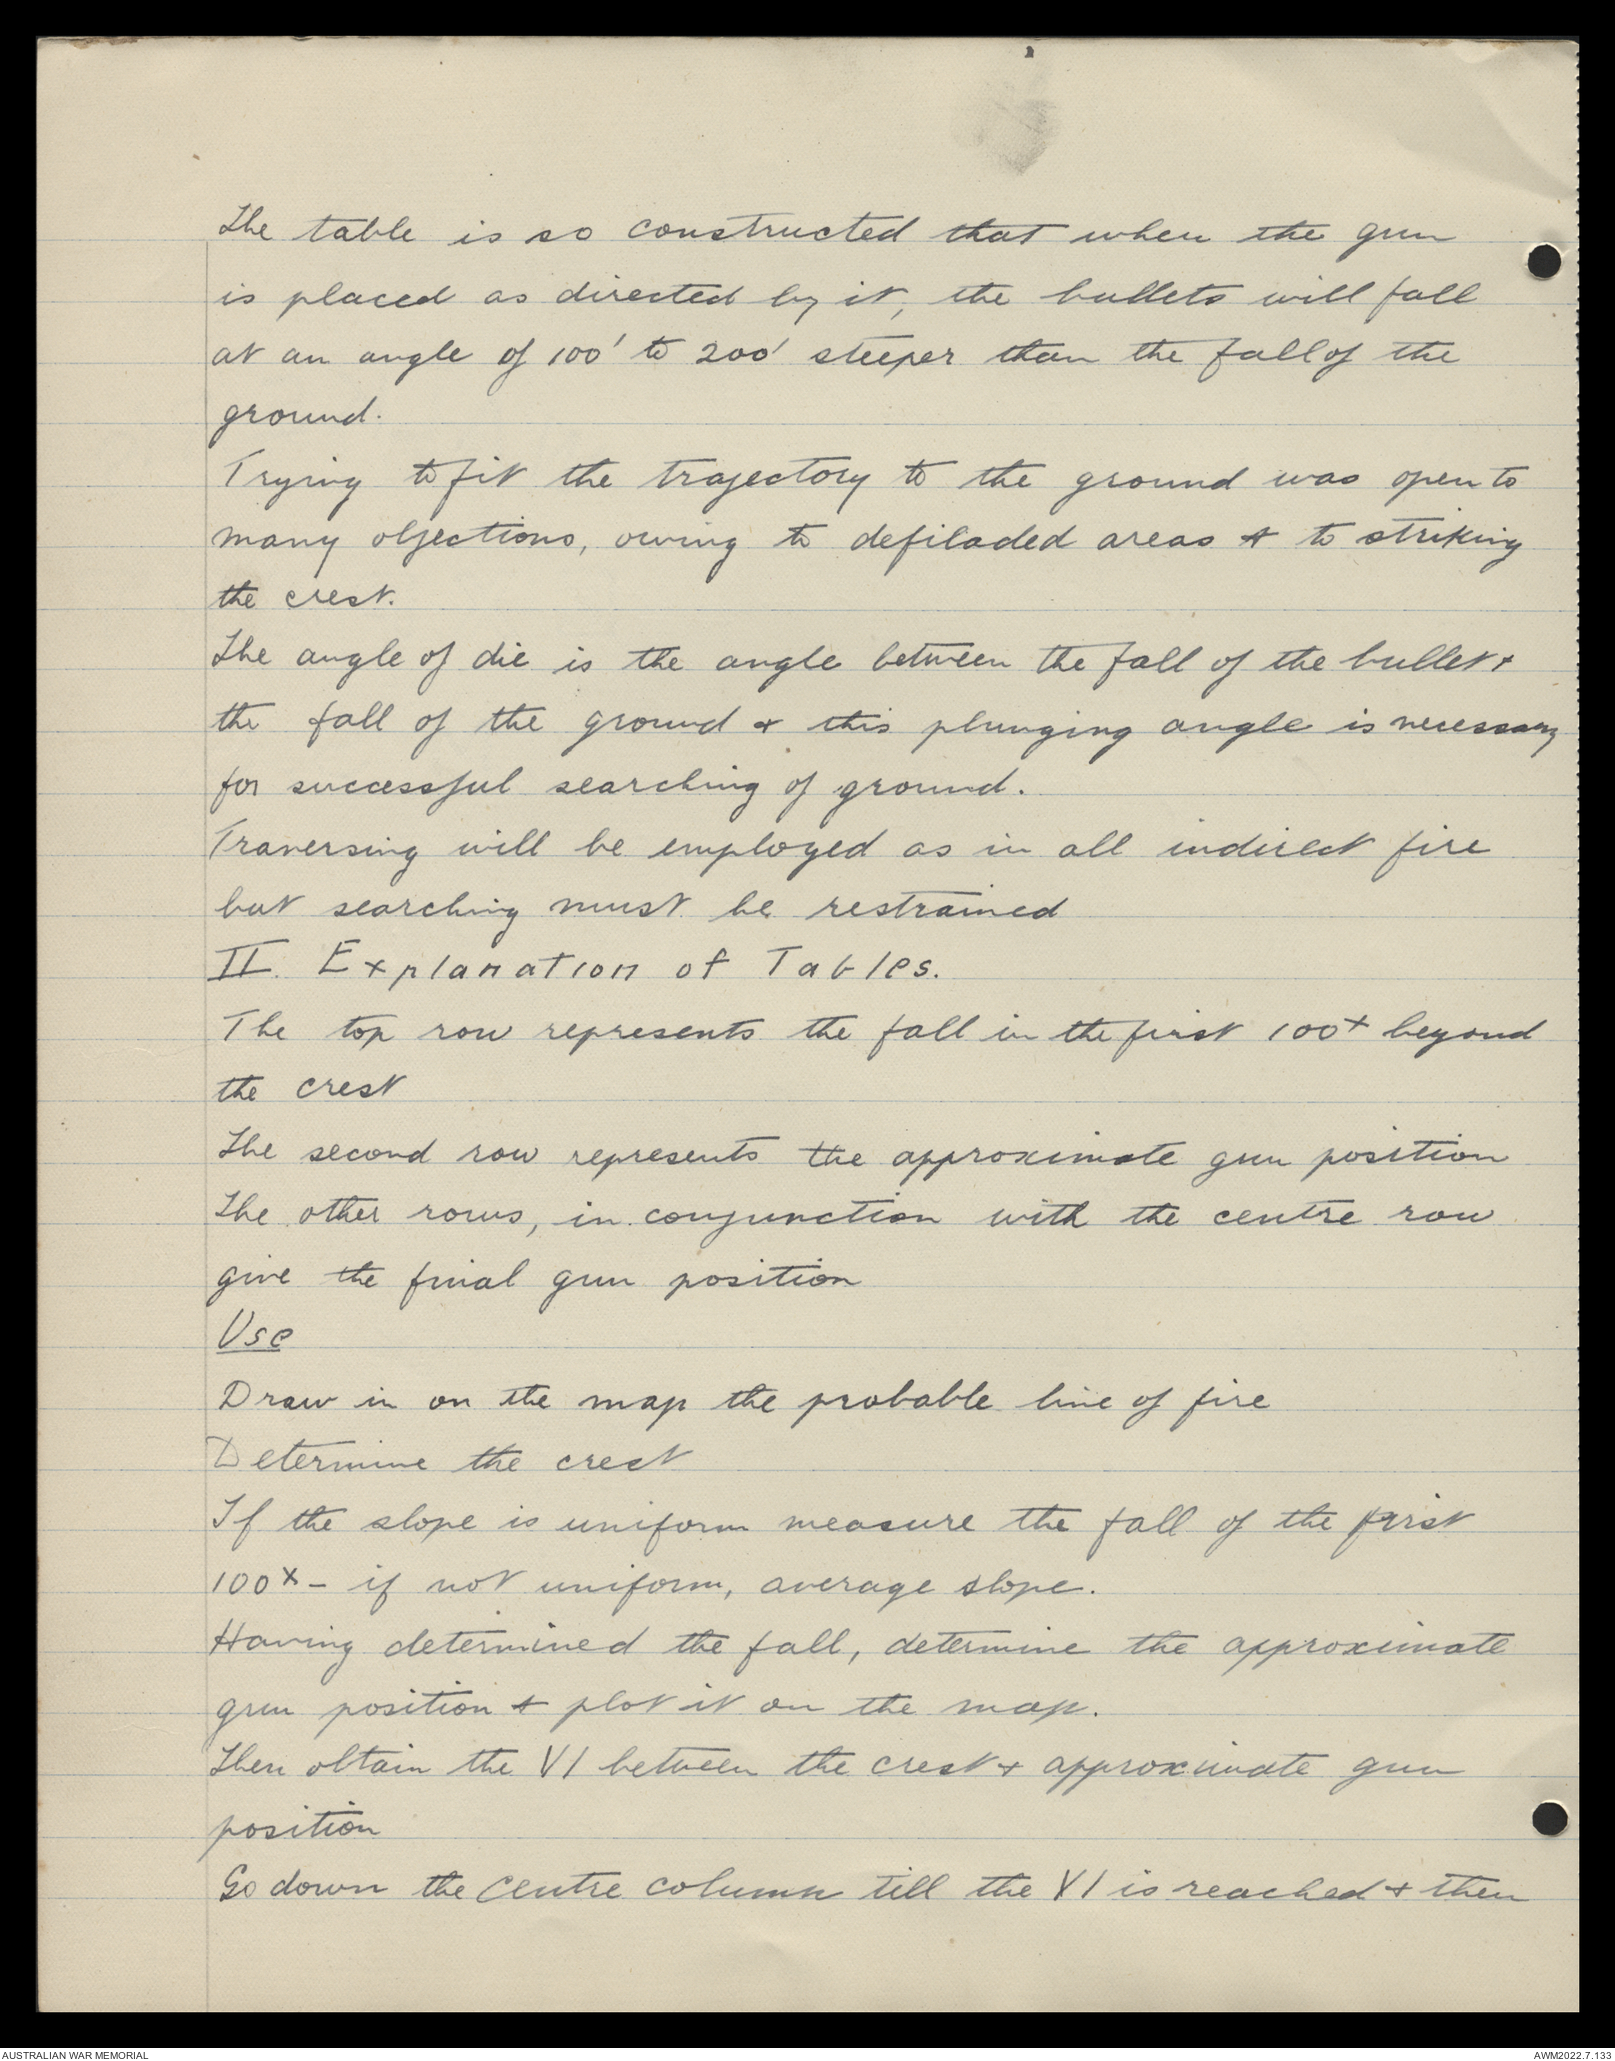 The table is so constructed that when the gun
is placed as directed by it, the bullets will fall
at an angle of 100' to 200' steeper than the fall of the
ground.
Trying to fit the trajectory to the ground was open to
many objections, owing to defiladed areas & to striking
the crest.
The angle of die is the angle between the fall of the bullet &
the fall of the ground & this plunging angle is necessary
for successful searching of ground.
Traversing will be employed as in all indirect fire
but searching must be restrained
II. Explanation of Tables.
The top row represents the fall in the first 100x beyond
the crest
The second row represents the approximate gun position
The other rows, in conjunction with the centre row
give the final gun position
Use
Draw in on the map the probable line of fire
Determine the crest
If the slope is uniform measure the fall of the first
100x - if not uniform, average slope.
Having determined the fall, determine the approximate
gun position & plot it on the map.
Then obtain the VI between the crest & approximate gun
position
Go down the centre column till the VI is reached & then
AUSTRALIAN WAR MEMORIAL
AWM2022.7.133